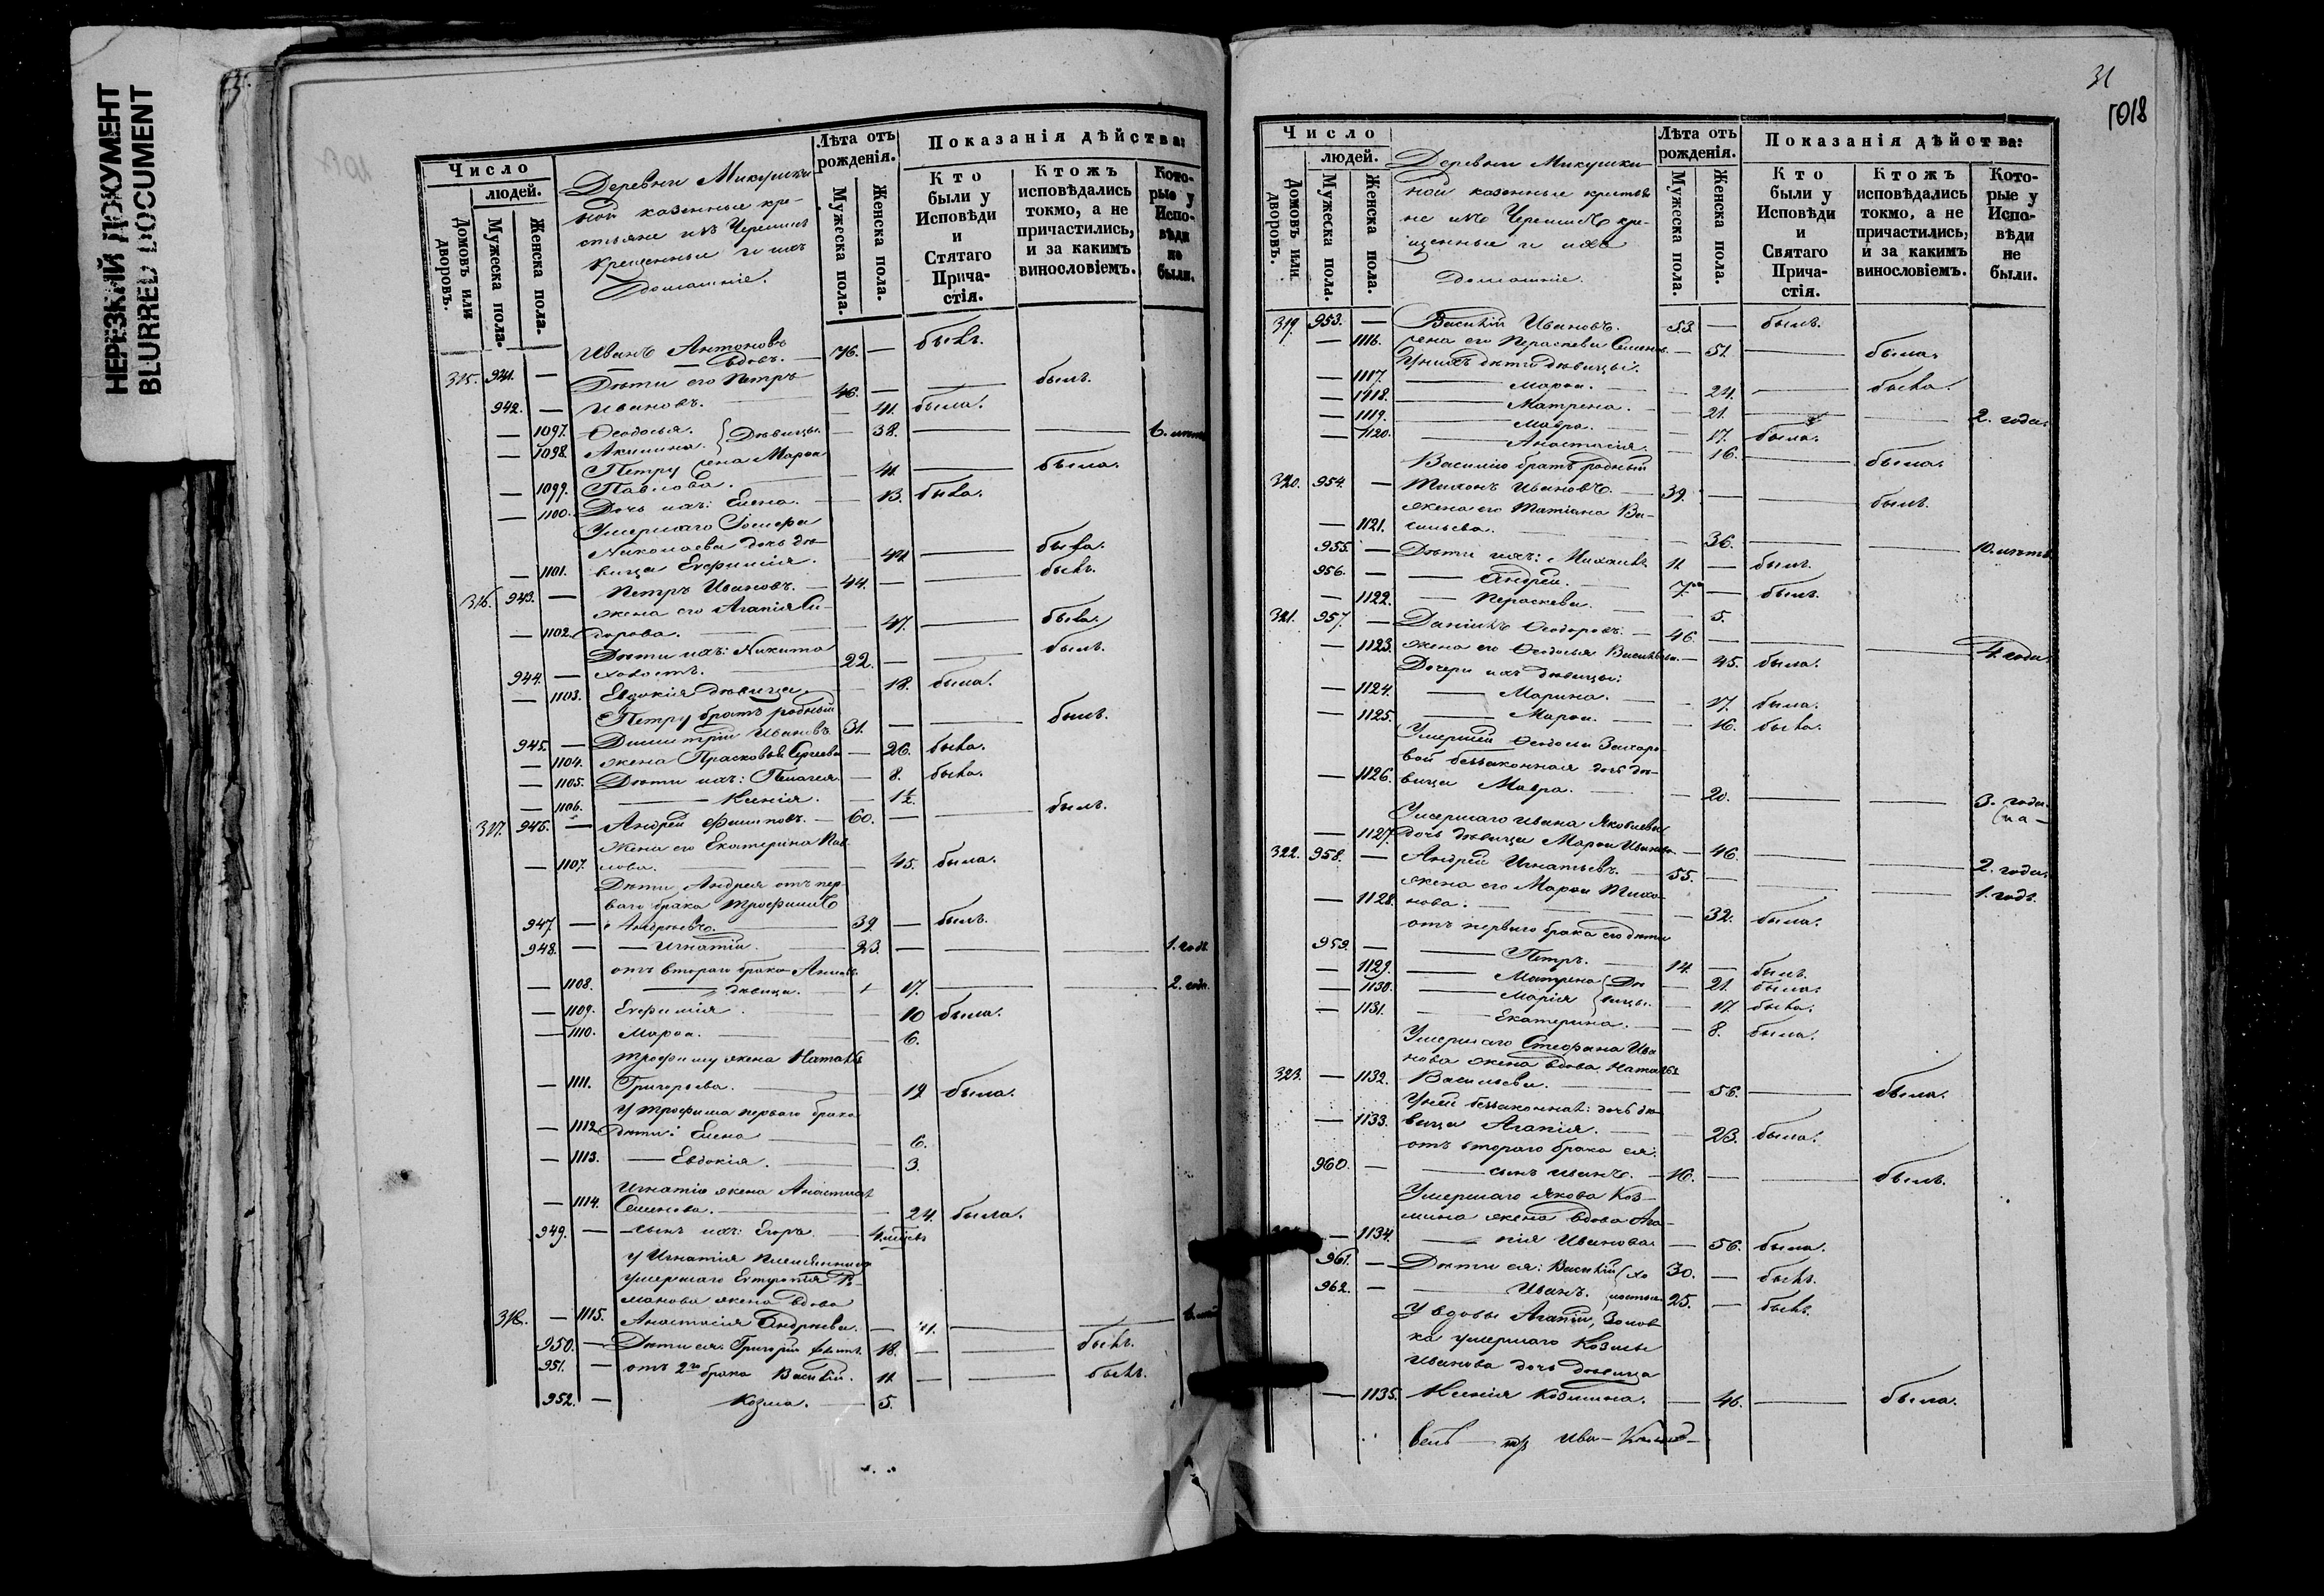 НЕРЕЗКИЙ ДОКУМЕНТ
BLURRED DOCUMENT
Число
людей.
Домовъ или дворовъ.
Мужеска пола.
Женска пола.
Деревни Микушки-
ной казенные кре-
стьяне изъ Черемисъ
крещенные и ихъ
домашніе.
Лѣта отъ рожденія.
Мужеска пола.
Женска пола.
Показанія дѣйства:
Кто были у Исповѣди и Стятаго Прича-стія.
Ктожъ исповѣдались токмо, а не причастились, и за какимъ винословіемъ.
Кото-рые у Испо-вѣди не были.
315. 941. — Иванъ Антоновъ вдовъ. — 76. — былъ.
Дѣти его Петръ
942. — Ивановъ. 46. — — былъ.
— 1097. Ѳеодосья. — 41. была.
— 1098. Акилина. Дѣвицы. — 38. — —
Петру жена Марѳа
— 1099. Павлова. — 41. — была.
— 1100. Дочь ихъ: Елена. — 13. была.
Умершаго Іосифа
Николаева дочь дѣ-
— 1101. вица Евфимія. — — была.
316. 943. — Петръ Ивановъ. — 44. — — былъ.
жена его Агапія Си-
— 1102. дорова. — 47. — была.
Дѣти ихъ: Никита
944. — холостъ. 22. — — былъ.
— 1103. Евдокія дѣвица. 18. была.
Петру братъ родный
945. — Димитрій Ивановъ 31. — — былъ.
— 1104. жена Прасковья Сергеева — 26. была.
— 1105. Дѣти ихъ: Пелагея. — 8. была.
— 1106. — Ксенія. — 1½.
317. 946. — Андрей Филиповъ. — 60. — — былъ.
Жена его Екатерина Пав-
— 1107. лова. — 45. была.
Дѣти Андрея отъ пер-
ваго брака Трофимъ
947 — Андреевъ. 39. — былъ.
948. — — Игнатій. 23. — — — 1. годъ.
отъ втораго брака
— 1108. — дѣвица. 17. — — 2. года.
— 1109. Евфимія. — 10 была.
— 1110. Марѳа. — 6.
Трофиму жена Наталья
— 1111. Григорьева. — 19 была.
У Трофима перваго брака
— 1112. дѣти: Елена — 6.
— 1113. — Евдокія. — 3.
Игнатія жена Анастасія
— 1114. Семенова. — 24. была.
949. — — сынъ ихъ: Егоръ.
У Игнатія племянника
умершаго Евтропія Ро-
манова жена вдова
318. — 1115. Анастасія Андреева. — 41. — —
950. — Дѣти ея: Григорій 18. — — былъ.
951. — отъ 2го брака Василій. 11. — — былъ.
952. — Козма. — 5.
31
1018
Число
людей.
Домовъ или дворовъ.
Мужеска пола.
Женска пола.
Деревни Микушки-
ной казенные крестья-
не изъ Черемисъ кре-
щенные и ихъ
домашніе.
Лѣта отъ рожденія.
Мужеска пола.
Женска пола.
Показанія дѣйства:
Кто были у Исповѣди и Святаго Прича-стія.
Ктожъ исповѣдались токмо, а не причастились, и за какимъ винословіемъ.
Кото-рые у Испо-вѣди не были.
319. 953. — Василій Ивановъ. 53. — былъ.
— 1116. жена его Параскева Семенов. — 51. — была.
У нихъ дѣти дѣвицы:
— 1117. — Марѳа. — 24. — была.
— 1118. — Матрена. — 21. — — 2. года.
— 1119. — Мавра. — 17. была.
— 1120. — Анастасія. — 16. — была.
Василію братъ родный
320. 954. — Тихонъ Ивановъ. 39. — — былъ.
жена его Татіана Ва-
— 1121. сильева. — 36. — — 10. лѣтъ.
955. — Дѣти ихъ: Михаилъ 11 — былъ.
956. — — Андрей. 7. — былъ.
— 1122. — Параскева. — 5.
321. 957. — Даніилъ Ѳеодоровъ. — 46. — — — 4. года.
— 1123. жена его Ѳеодосья Васильева. — 45. была.
Дочери ихъ дѣвицы:
— 1124. — Марина. — 17. была.
— 1125. — Марѳа. — 16. была.
Умершей Ѳеодосьи Захаро-
вой беззаконная дочь дѣ-
— 1126. вица Мавра. — 20. — — 3. года.
Умершаго Ивана Яковлева
— 1127. дочь дѣвица Марѳа Иванова. — 46. — — 2. года.
322. 958. — Андрей Игнатьевъ. — 55. — — — 1. годъ.
жена его Марѳа Тихо-
— 1128. нова. — 32. была.
отъ перваго брака его дѣти
959. — — Петръ. 14. — былъ.
— 1129. — Матрена Дѣ- — 21. была.
— 1130. — Марія вицы. — 17. была.
— 1131. — Екатерина. — 8. была.
Умершаго Стефана Ива-
нова жена вдова Наталья
323. — 1132. Васильева. — 56. — была.
У ней беззаконная: дочь дѣ-
— 1133. вица Агапія. — 23. была.
отъ втораго брака ея:
960. — — сынъ Иванъ. — 16. — — былъ.
Умершаго Якова Коз-
мина жена вдова Ага-
— 1134. — пія Иванова. — 56. была.
961. — Дѣти ея: Василій хо- 30. — былъ.
962. — — Иванъ. лостые 25. — былъ.
У вдовы Агапіи, золов-
ка умершаго Козмы
Иванова дочь дѣвица
— 1135. Ксенія Козмина. — 46. — была.